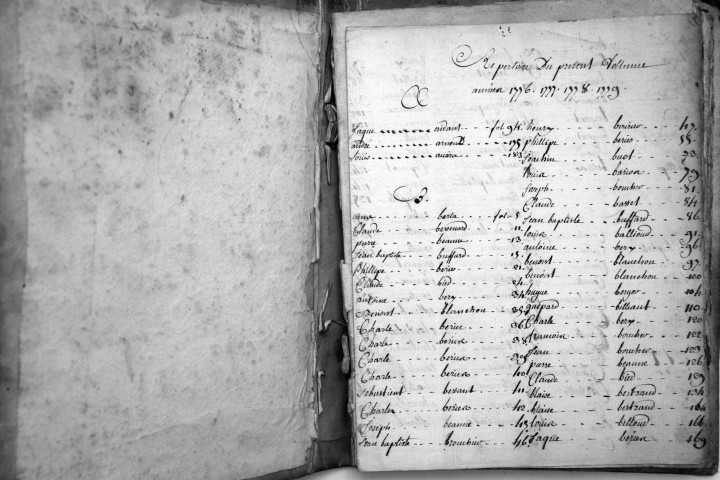 Repertoire Du present Vollume
années 1776. 1777. 1778. 1779.
A
Jaque aidant fol. 94.
andré arnould 175
Louis 183
B.
anna berla fol. 8
Claude bernard 11.
pierre beaune 13
Jean baptiste buffard 15.
Philippe beries 21.
Claude bied 24.
antoine bery 34
Benoist blanchon 35
Charle berier 36
Charle berier 38
Charle berier 39
Charle berier 40
Sebastient bessant 41
Charles berier 42
Joseph beaune 45
Jean baptiste bouchier 46
henry 47
phillipe beries 58
Joachin buot 73
barion 79
Joseph boucher 81
Claude basset 84
Jean baptiste buffard 86
Louis balliond 91
antoine bery 96
benoist blanchon 97
benoist blanchon 100
hugue boyer 104
gaspard billiaut 110
Charle bery 120
francois boucher 122
Jean boucher 123
pierre beaune 126
Claude bied 129
blaise bertrand 134
blaise bertrand 164
Louis billoud 166
Jaque berier 169